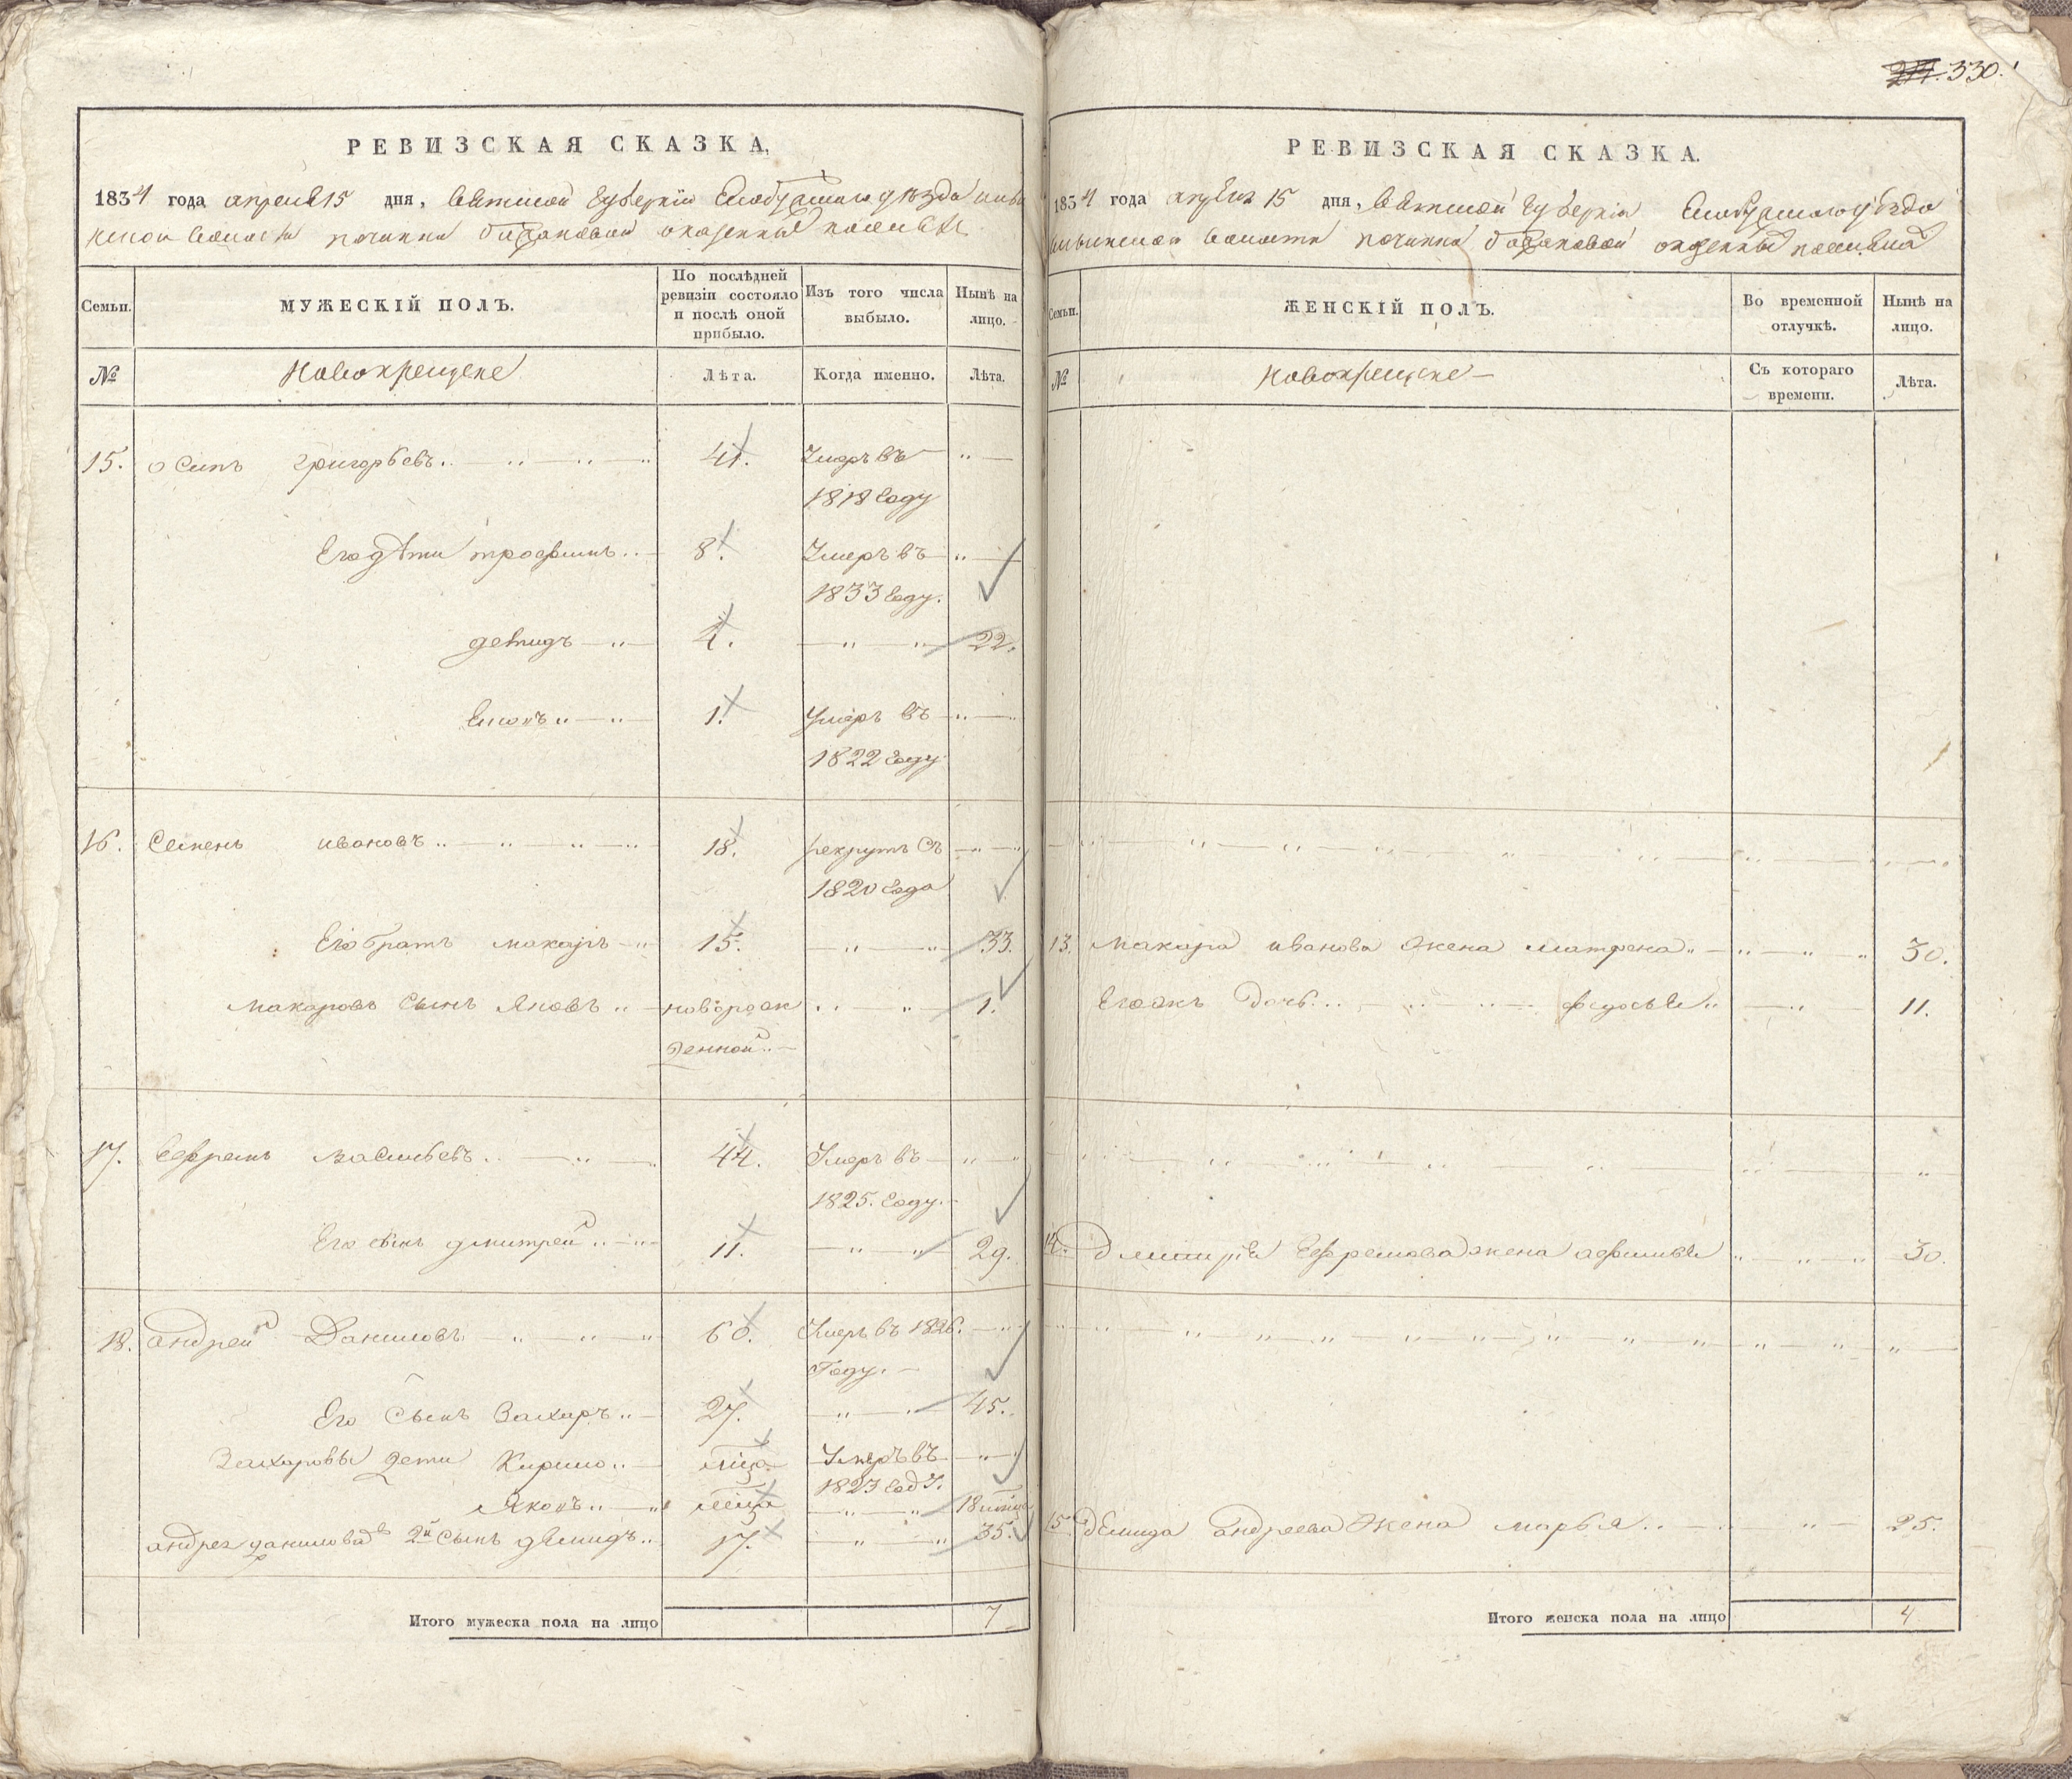 330.
РЕВИЗСКАЯ СКАЗКА,
1834 года апреля 15 дня, Вятской Губернии Слободскаго уѣзда
волости починка
Семьи.
МУЖЕСКІЙ ПОЛЪ.
По послѣдней ревизіи состояло и послѣ оной прибыло.
Изъ того числа выбыло.
Нынѣ на лицо.
№
Новокрещене
Лѣта.
Когда именно.
Лѣта.
15. осипъ григорьевъ 41. Умеръ въ
1818 Году
Его дѣти трофимъ 8. Умеръ въ
1833 Году.
демидъ 4. 22.
1. Умеръ въ
1822 Году
16. Семенъ ивановъ 18. рекрутъ съ
1820 Года
Его братъ макаръ 15. 33.
макаровъ сынъ Яковъ новорож 1.
денной
17. Ефремъ васильевъ 44. Умеръ въ
1825. Году.
Его сынъ дмитрей 11. 29.
18. андрей Даниловъ 60. Умеръ въ 1826.
Году.
Его Сынъ Захаръ 27. 45.
Захаровы дети Кирило Умеръ въ
1823 Году.
Яковъ 18
андрея данилова 2й сынъ демидъ 17. 35.
Итого мужеска пола на лицо 7
РЕВИЗСКАЯ СКАЗКА.
1834 года апреля 15 дня, Вятской Губерніи Слободскаго уѣзда
волости починка
Семьи.
ЖЕНСКІЙ ПОЛЪ.
Во временной отлучкѣ.
Нынѣ на лицо.
№
новокрещене
Съ котораго времени.
Лѣта.
13. Макара иванова жена матрена 30.
Его жъ дочь федосья 11.
14. дмитрія Ефремова жена афимья 30.
15 демида андреева жена марья 25.
Итого женска пола на лицо 4